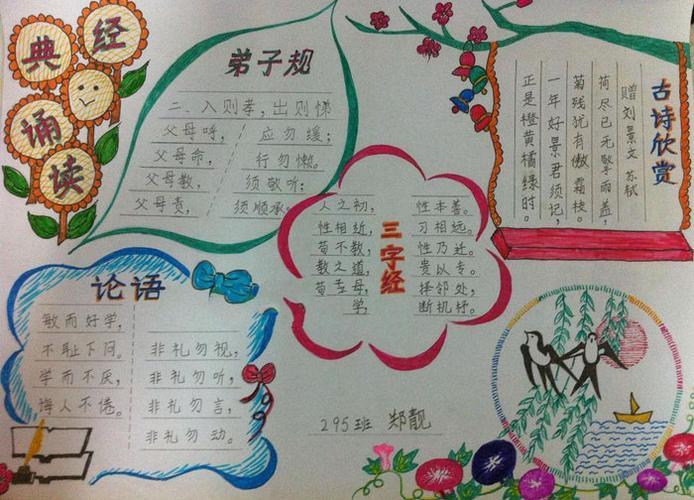 经典诵读
弟子规
二、入则孝,出则悌
父母呼, 应勿缓;
父母命, 行勿懒。
父母教, 须敬听;
父母责, 须顺承。
古诗欣赏
赠刘景文 苏轼
荷尽已无擎雨盖,
菊残犹有傲霜枝。
一年好景君须记,
正是橙黄橘绿时。
三字经
人之初, 性本善。
性相近, 习相远。
苟不教, 性乃迁。
教之道, 贵以专。
母, 择邻处,
学, 断机杼。
论语
敏而好学,
不耻下问。
学而不厌,
诲人不倦。
非礼勿视,
非礼勿听,
非礼勿言,
非礼勿动。
295班 郑靓